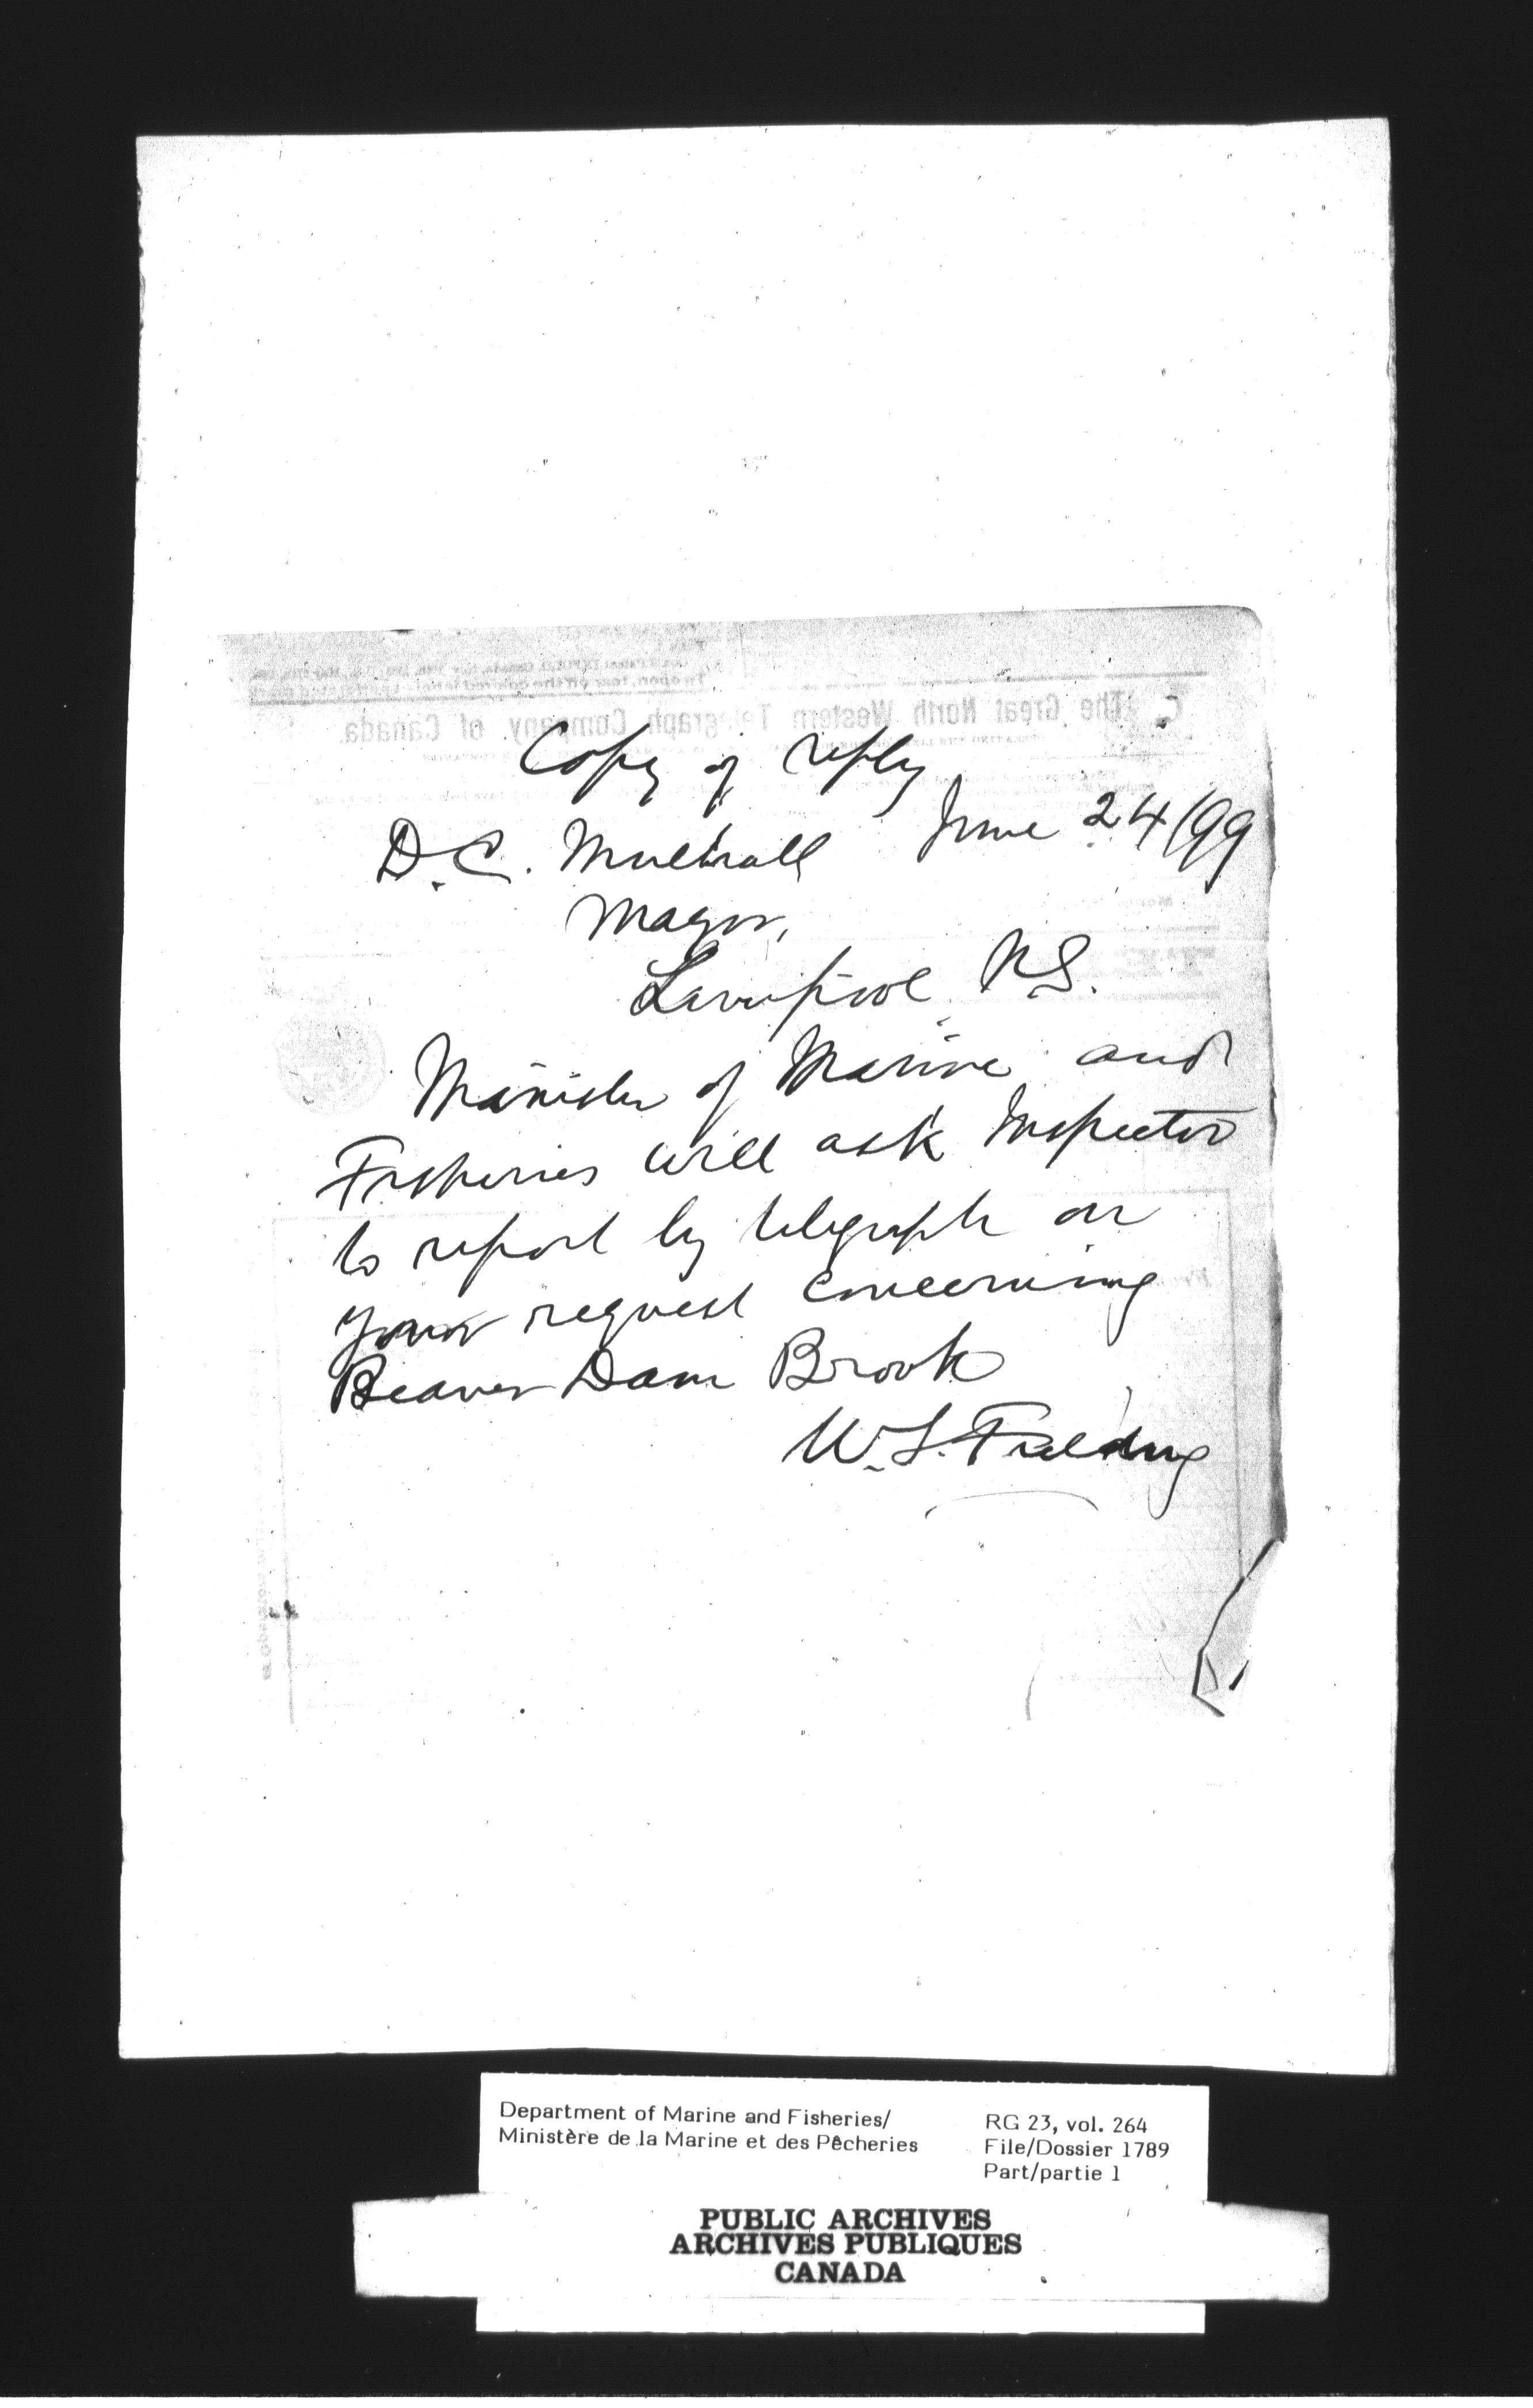 The Great North Western Telegraph Company of Canada.
Copy of reply
June 24/99
D. C. Mulhall
Mayor,
Liverpool N.S.
Minister of Marine and
Fisheries will ask Inspector
to report by telegraph on
your request concerning
Beaver Dam Brook
W. S. Fielding
Department of Marine and Fisheries/
Ministère de la Marine et des Pêcheries
RG 23, vol. 264
File/Dossier 1789
Part/partie 1
PUBLIC ARCHIVES
ARCHIVES PUBLIQUES
CANADA